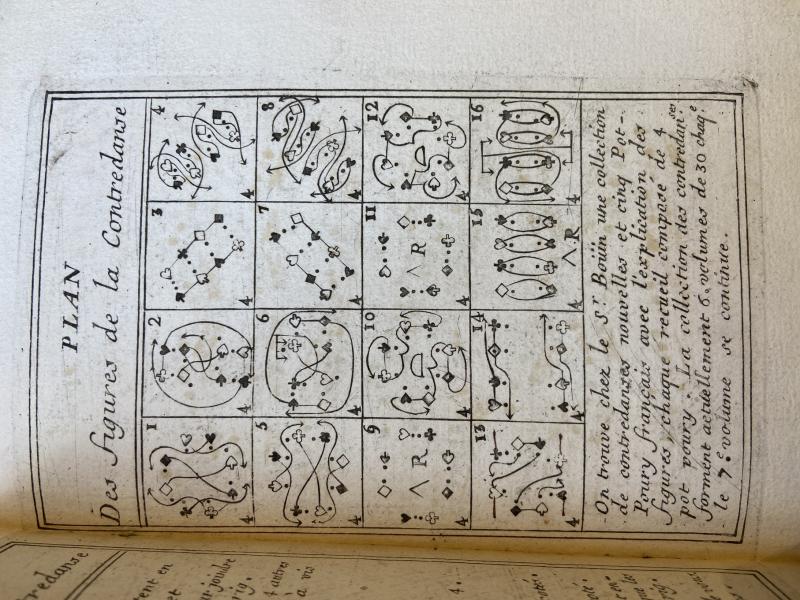 PLAN
Des figures de la Contredanse
1 2 3 4
4 4
5 6 7 8
4 4 4 4
9 10 11 12
Λ R Λ R
4 4 4 4
13 14 15 16
4 4 4 Λ R 4
On trouve chez le Sr Boüin une collection
de contredanses nouvelles et cinq Pot-
Poury français avec l'explication des
figures, chaque recueil composé de 4
pot poury La collection des contredanses
forment actuellement 6. volumes de 30 chaqe
le 7.e volume se continue.
redanse
tent en
et
ur joindre
rig.
4 autres
à vis
4.